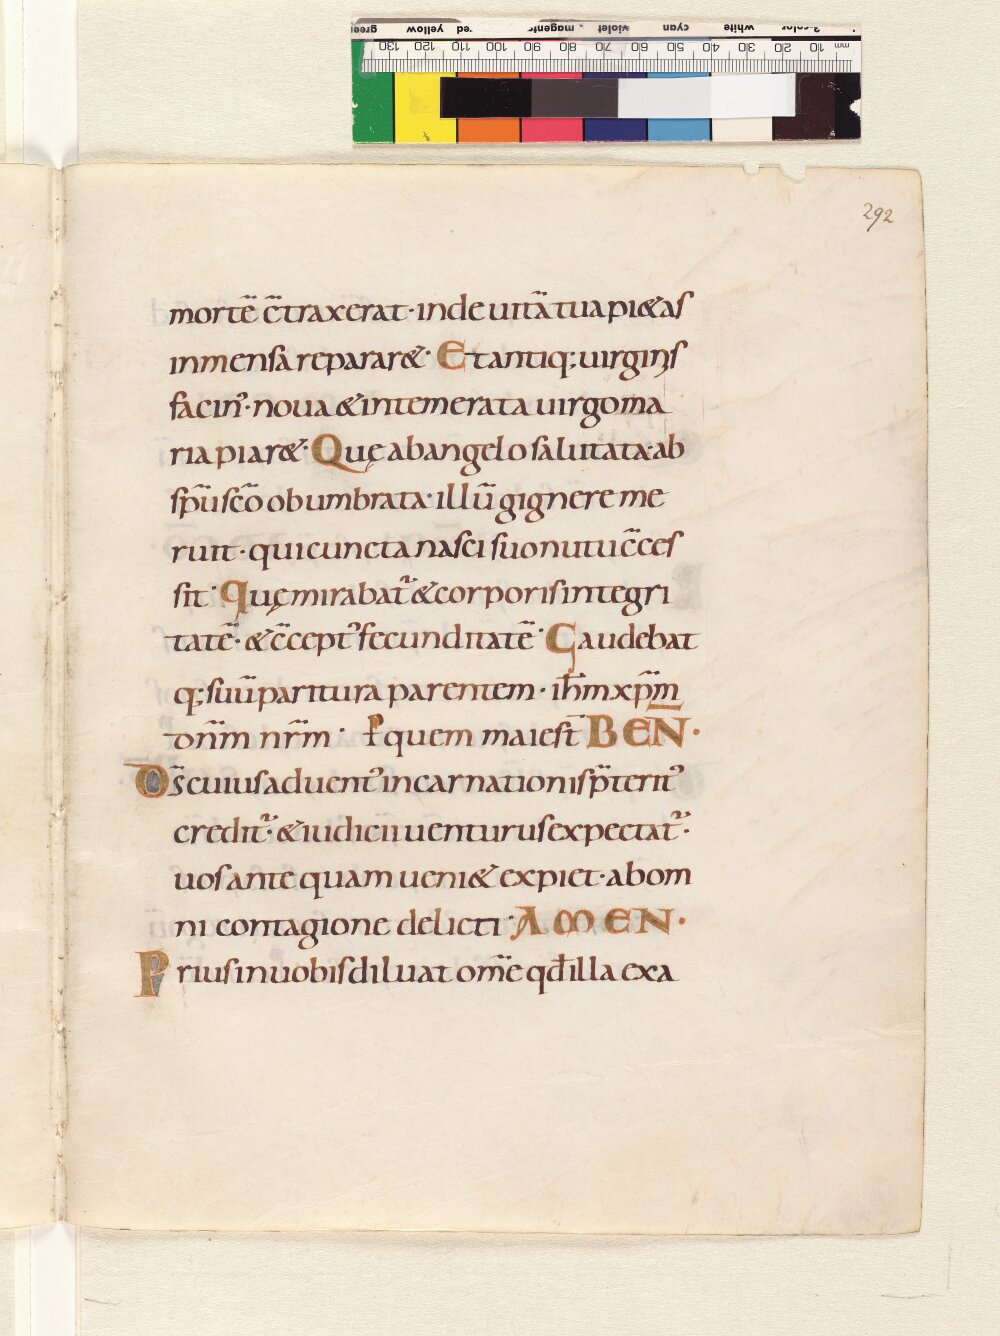 292
mortē c̄traxerat· inde uitā tua pi&as
inmensa reparar&· Et antiq; uirginis
facin᾿· noua & intemerata uirgo ma
ria piar&· Quę ab angelo salutata· ab
sp̄u sc̄o obumbrata· illū gignere me
ruit· qui cuncta nasci suo nutu c̄ces
sit· Quę mirabat᷑ & corporis integri
tatē· & c̄cept᾿ fecunditatē· Gaudebat
q; suū paritura parentem· ih̄m xp̄m
dn̄m nr̄m· P quem maiest̄ BEN̄·
Ds̄ cuius aduent᾿ incarnationis p̄terit᾿
credit᷑· & iudicii uenturus expectat᷑·
uos antequam ueni& expiet· ab om
ni contagione delicti· AMEN·
Prius in uobis diluat om̄e qđ illa exa